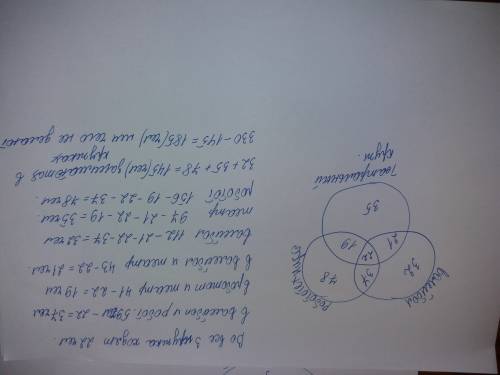 Во все 3 кружка ходят 22 чел.
В волейбол и робот. 59 - 22 = 37 чел
В робот и театр 41 - 22 = 19 чел
В волейбол и театр 43 - 22 = 21 чел.
волейбол 112 - 21 - 22 - 37 = 32 чел
театр 97 - 21 - 22 - 19 = 35 чел.
робот 156 - 19 - 22 - 37 = 78 чел.
32 + 35 + 78 = 145 (чел) занимаются в
кружках
330 - 145 = 185 (чел) ни чего не
волейбол
32
37
78
22
21
19
35
Театральный
круж.